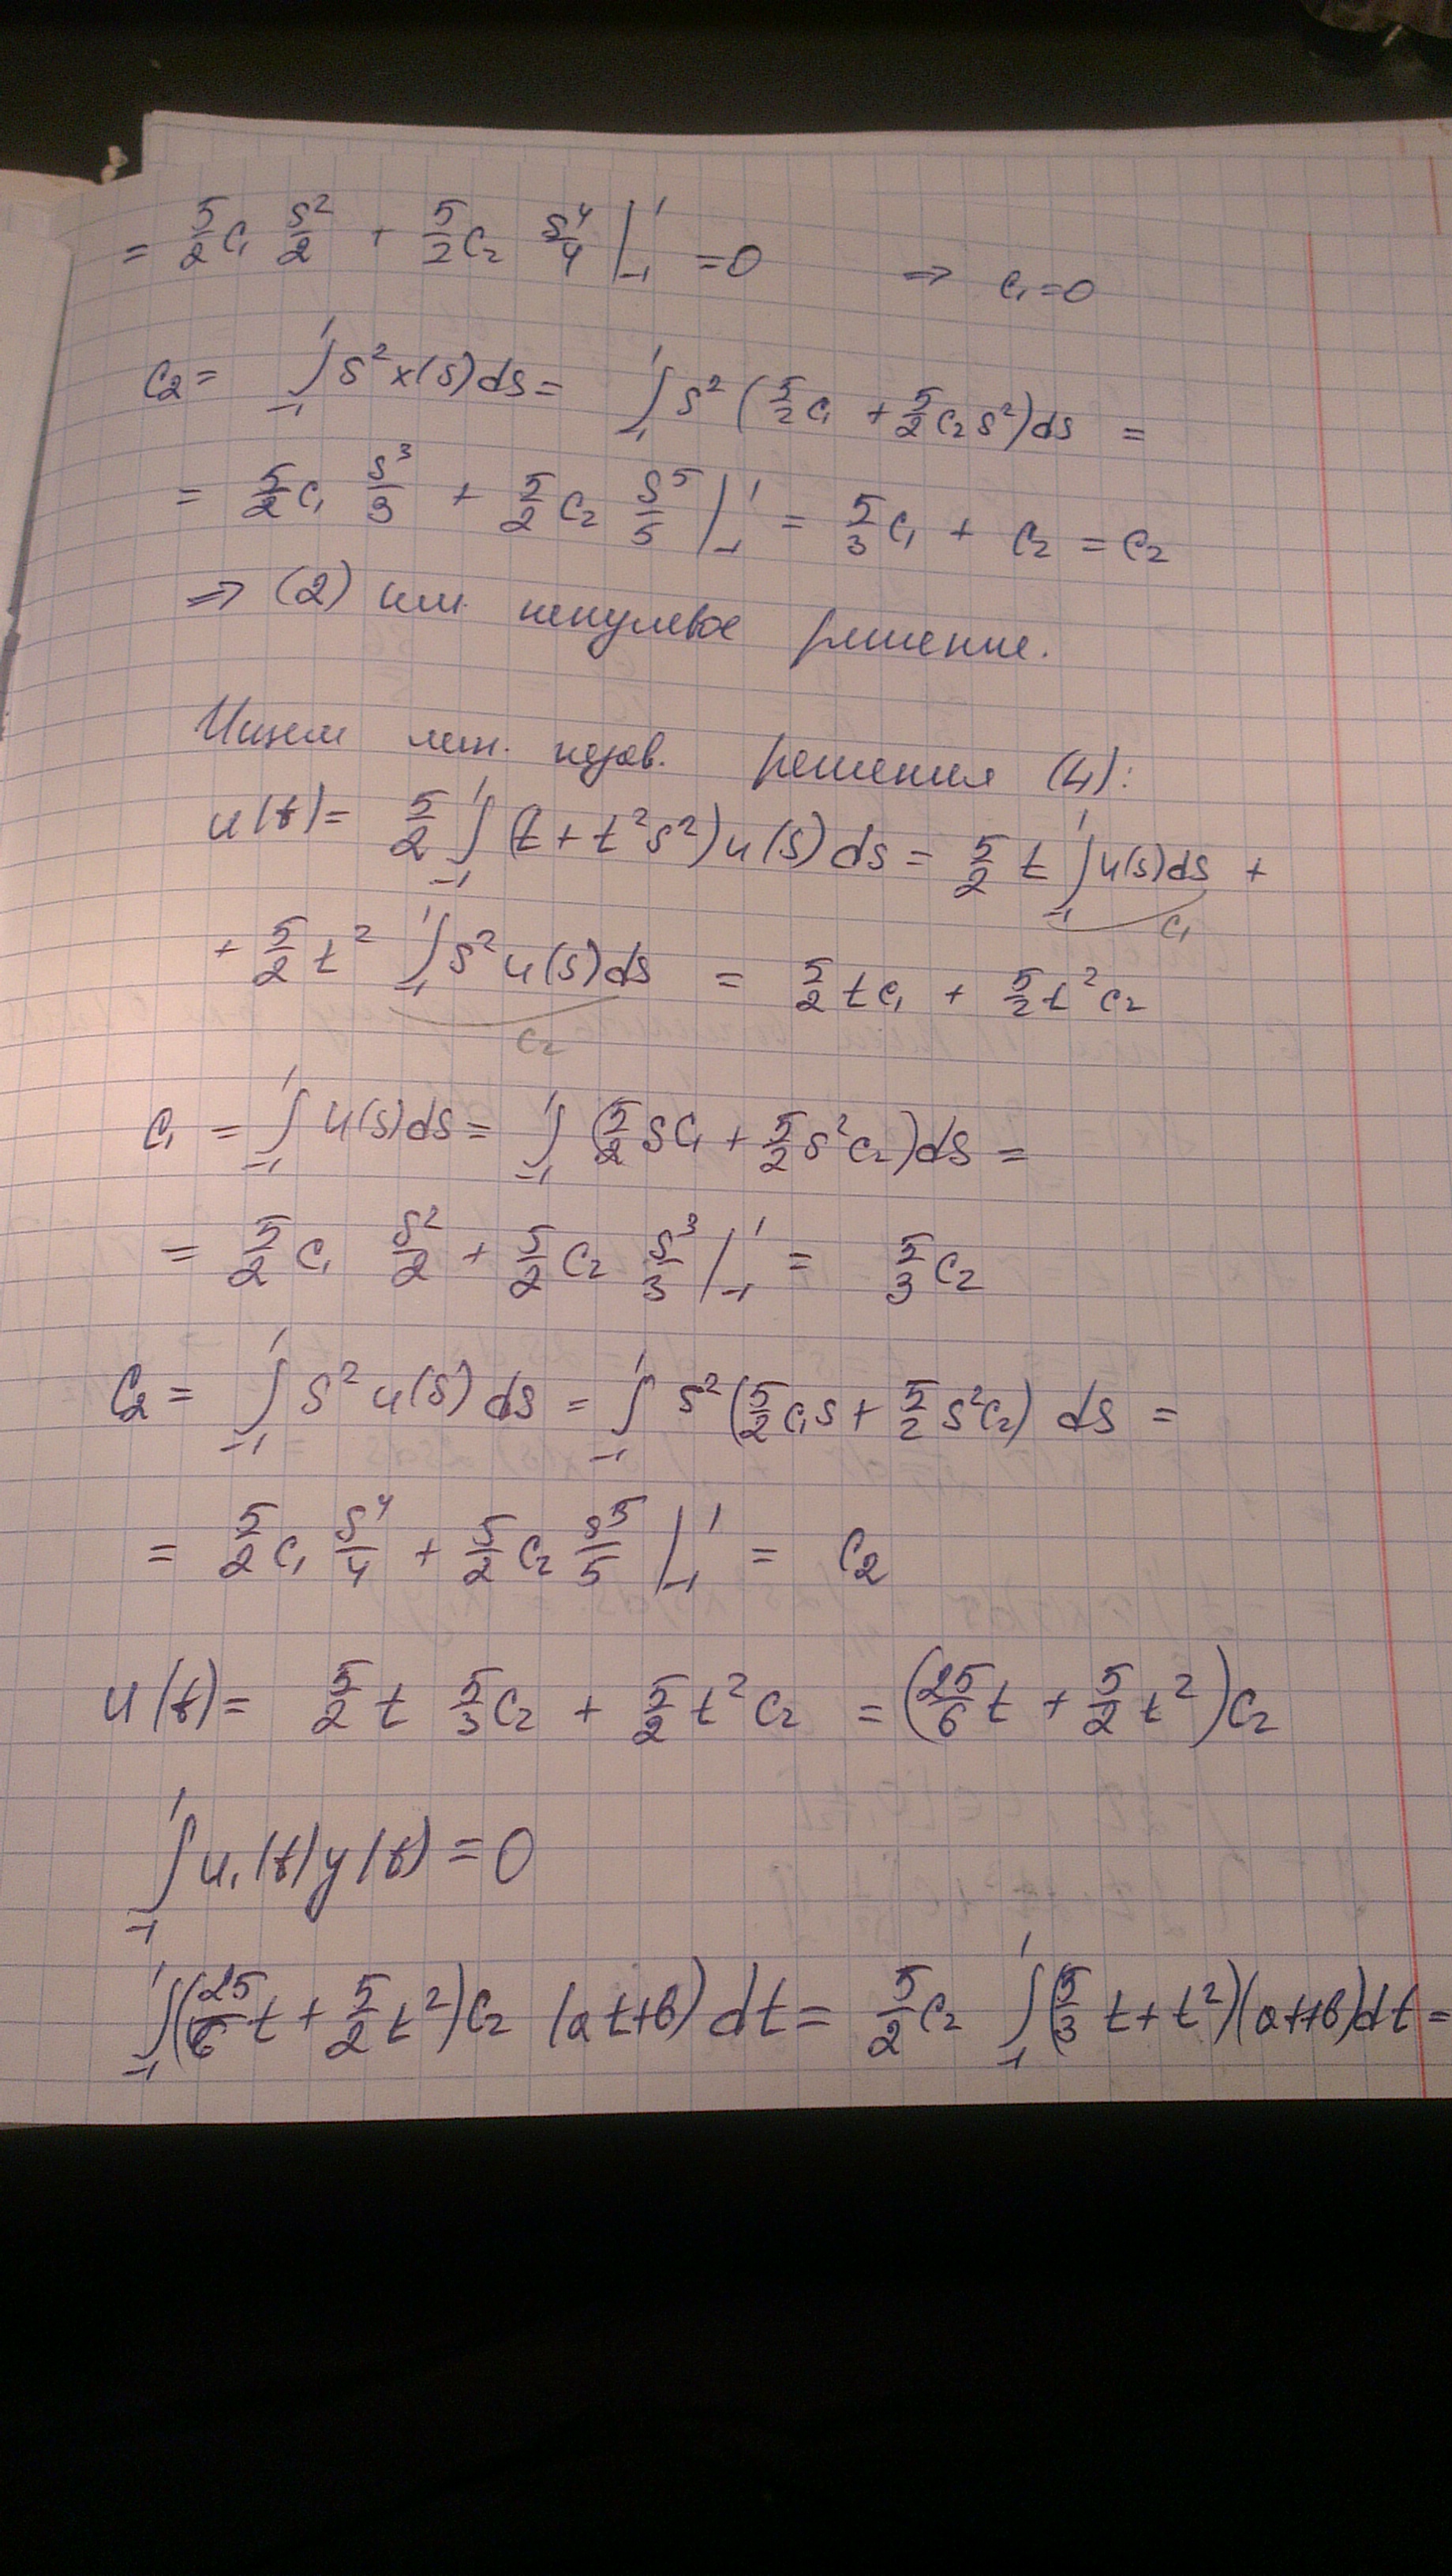 = 5/2 c₁ s²/2 + 5/2 c₂ s⁴/4 |₋₁¹ = 0 ⇒ c₁ = 0
c₂ = ∫₋₁¹ s² x(s) ds = ∫₋₁¹ s² (5/2 c₁ + 5/2 c₂ s²) ds =
= 5/2 c₁ s³/3 + 5/2 c₂ s⁵/5 |₋₁¹ = 5/3 c₁ + c₂ = c₂
⇒ (2) им. ненулевое решение.
Ищем лин. незав. решения (4):
u(t) = 5/2 ∫₋₁¹ (t + t²s²) u(s) ds = 5/2 t ∫₋₁¹ u(s) ds +
c₁
+ 5/2 t² ∫₋₁¹ s² u(s) ds = 5/2 t c₁ + 5/2 t² c₂
c₂
c₁ = ∫₋₁¹ u(s) ds = ∫₋₁¹ (5/2 s c₁ + 5/2 s² c₂) ds =
= 5/2 c₁ s²/2 + 5/2 c₂ s³/3 |₋₁¹ = 5/3 c₂
c₂ = ∫₋₁¹ s² u(s) ds = ∫₋₁¹ s² (5/2 c₁ s + 5/2 s² c₂) ds =
= 5/2 c₁ s⁴/4 + 5/2 c₂ s⁵/5 |₋₁¹ = c₂
u(t) = 5/2 t 5/3 c₂ + 5/2 t² c₂ = (25/6 t + 5/2 t²) c₂
∫₋₁¹ u₁(t) y(t) = 0
∫₋₁¹ (25/6 t + 5/2 t²) c₂ (at+b) dt = 5/2 c₂ ∫₋₁¹ (5/3 t + t²)(at+b) dt =